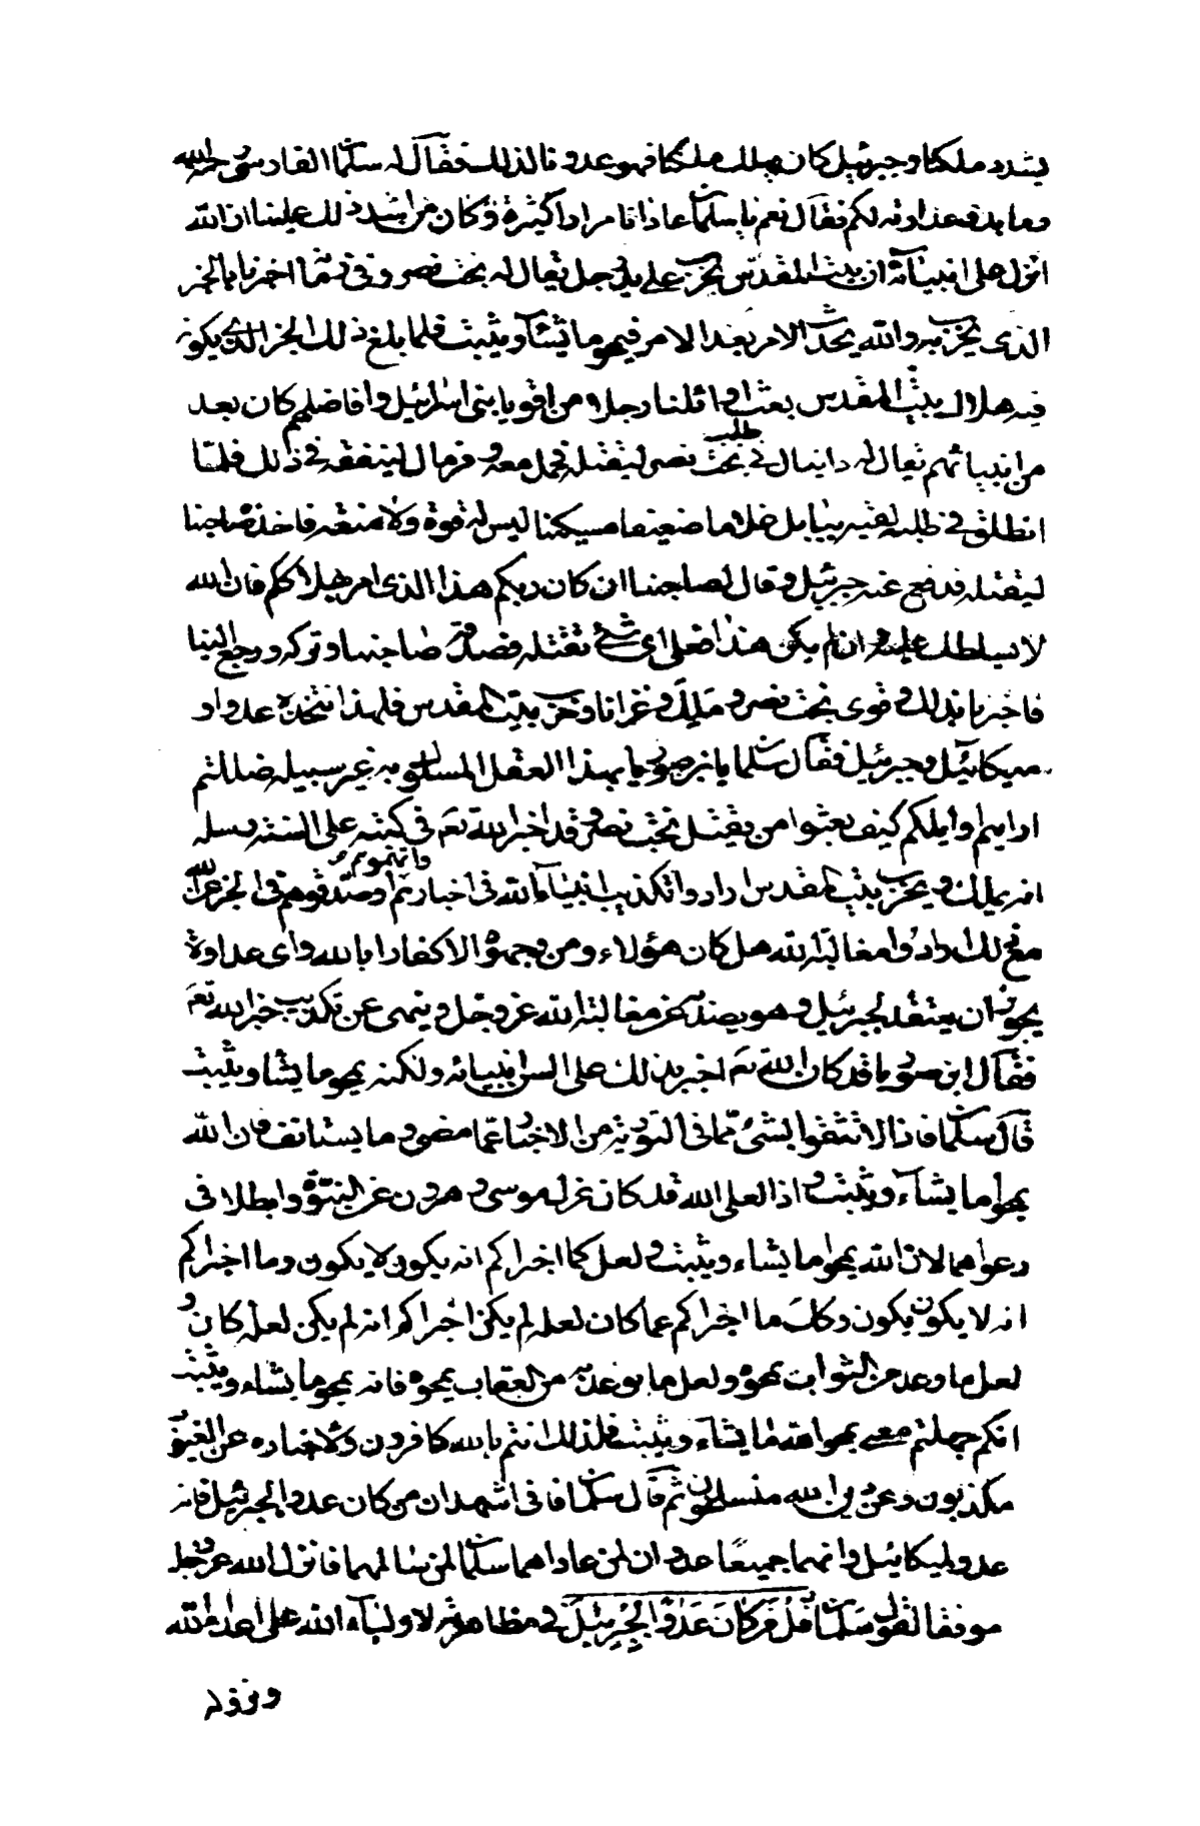 يشدد ملكنا وجبرئيل كان يهلك ملكنا فهو عدونا لذلك فقال له سلمان الفارسي رحمه الله
وما بدء عداوته لكم فقال نعم يا سلمان عادانا مرارا كثيرة وكان من اشد ذلك علينا ان الله
انزل على انبيائه ان بيت المقدس يخرب على يد رجل يقال له بخت نصر وفي زمانه اخبرنا بالخبر
الذي يخرب به والله يحدث الامر بعد الامر فيمحو ما يشاء ويثبت فلما بلغ ذلك الخبر الذي يكون
فيه هلاك بيت المقدس بعث اوائلنا رجلا من اقويا بني اسرائيل وافاضلهم كان يعد
من انبيائهم يقال له دانيال في طلب بخت نصر ليقتله فحمل معه وقر مال لينفقه في ذلك فلما
انطلق في طلبه لقيه ببابل غلاما ضعيفا مسكينا ليس له قوة ولا منعة فاخذه صاحبنا
ليقتله فدفع عنه جبرئيل وقال لصاحبنا ان كان ربكم هذا الذي امر بهلاككم فان الله
لا يسلطك عليه وان لم يكن هذا فعلى اي شئ تقتله فصدقه صاحبنا وتركه ورجع الينا
فاخبرنا بذلك وقوى بخت نصر وملك وغزانا وخرب بيت المقدس فلهذا نتخذه عدوا و
ميكائيل عدو لجبرئيل فقال سلمان يا بن صوريا بهذا العقل المسلوك به غير سبيله ضللتم
ارايتم اوايلكم كيف بعثوا من يقتل بخت نصر وقد اخبر الله تعم في كتبه على السنة رسله
انه يملك ويخرب بيت المقدس ارادوا تكذيب انبياء الله في اخبارهم واتهموهم او صدقوهم في الخبر عن الله
مع ذلك ارادوا مغالبة الله هل كان هؤلاء ومن وجهوه الا كفارا بالله واي عداوة
يجوز ان يعتقد لجبرئيل وهو يصد عن مغالبة الله عز وجل وينهى عن تكذيب خبر الله تعم
فقال ابن صوريا قد كان الله تعم اخبر بذلك على السن انبيائه ولكنه يمحو ما يشا ويثبت
قال سلمان فاذا لا تثقوا بشئ مما في التورية من الاخبار عما مضى وما يستانف فان الله
يمحو ما يشاء ويثبت واذا لعل الله قد كان عزل موسى وهرون عن النبوة وابطلا في
دعواهما لان الله يمحو ما يشاء ويثبت ولعل كلما اخبراكم انه يكون لا يكون وما اخبراكم
انه لا يكون يكون وكك ما اخبراكم عما كان لعله لم يكن وما اخبراكم انه لم يكن لعله كان و
لعل ما وعده من الثواب يمحوه ولعل ما توعد به من العقاب يمحوه فانه يمحو ما يشاء ويثبت
انكم جهلتم معنى يمحو الله ما يشاء ويثبت فلذلك انتم بالله كافرون ولاخباره عن الغيوب
مكذبون وعن دين الله منسلخون ثم قال سلمان فاني اشهد ان من كان عدوا لجبرئيل فانه
عدو لميكائيل وانهما جميعا عدوان لمن عاداهما سلمان لمن سالمهما فانزل الله عز وجل
موافقا لقول سلمان قل من كان عدوا لجبرئيل في مظاهرته لاولياء الله على اعداء الله
ونزوله